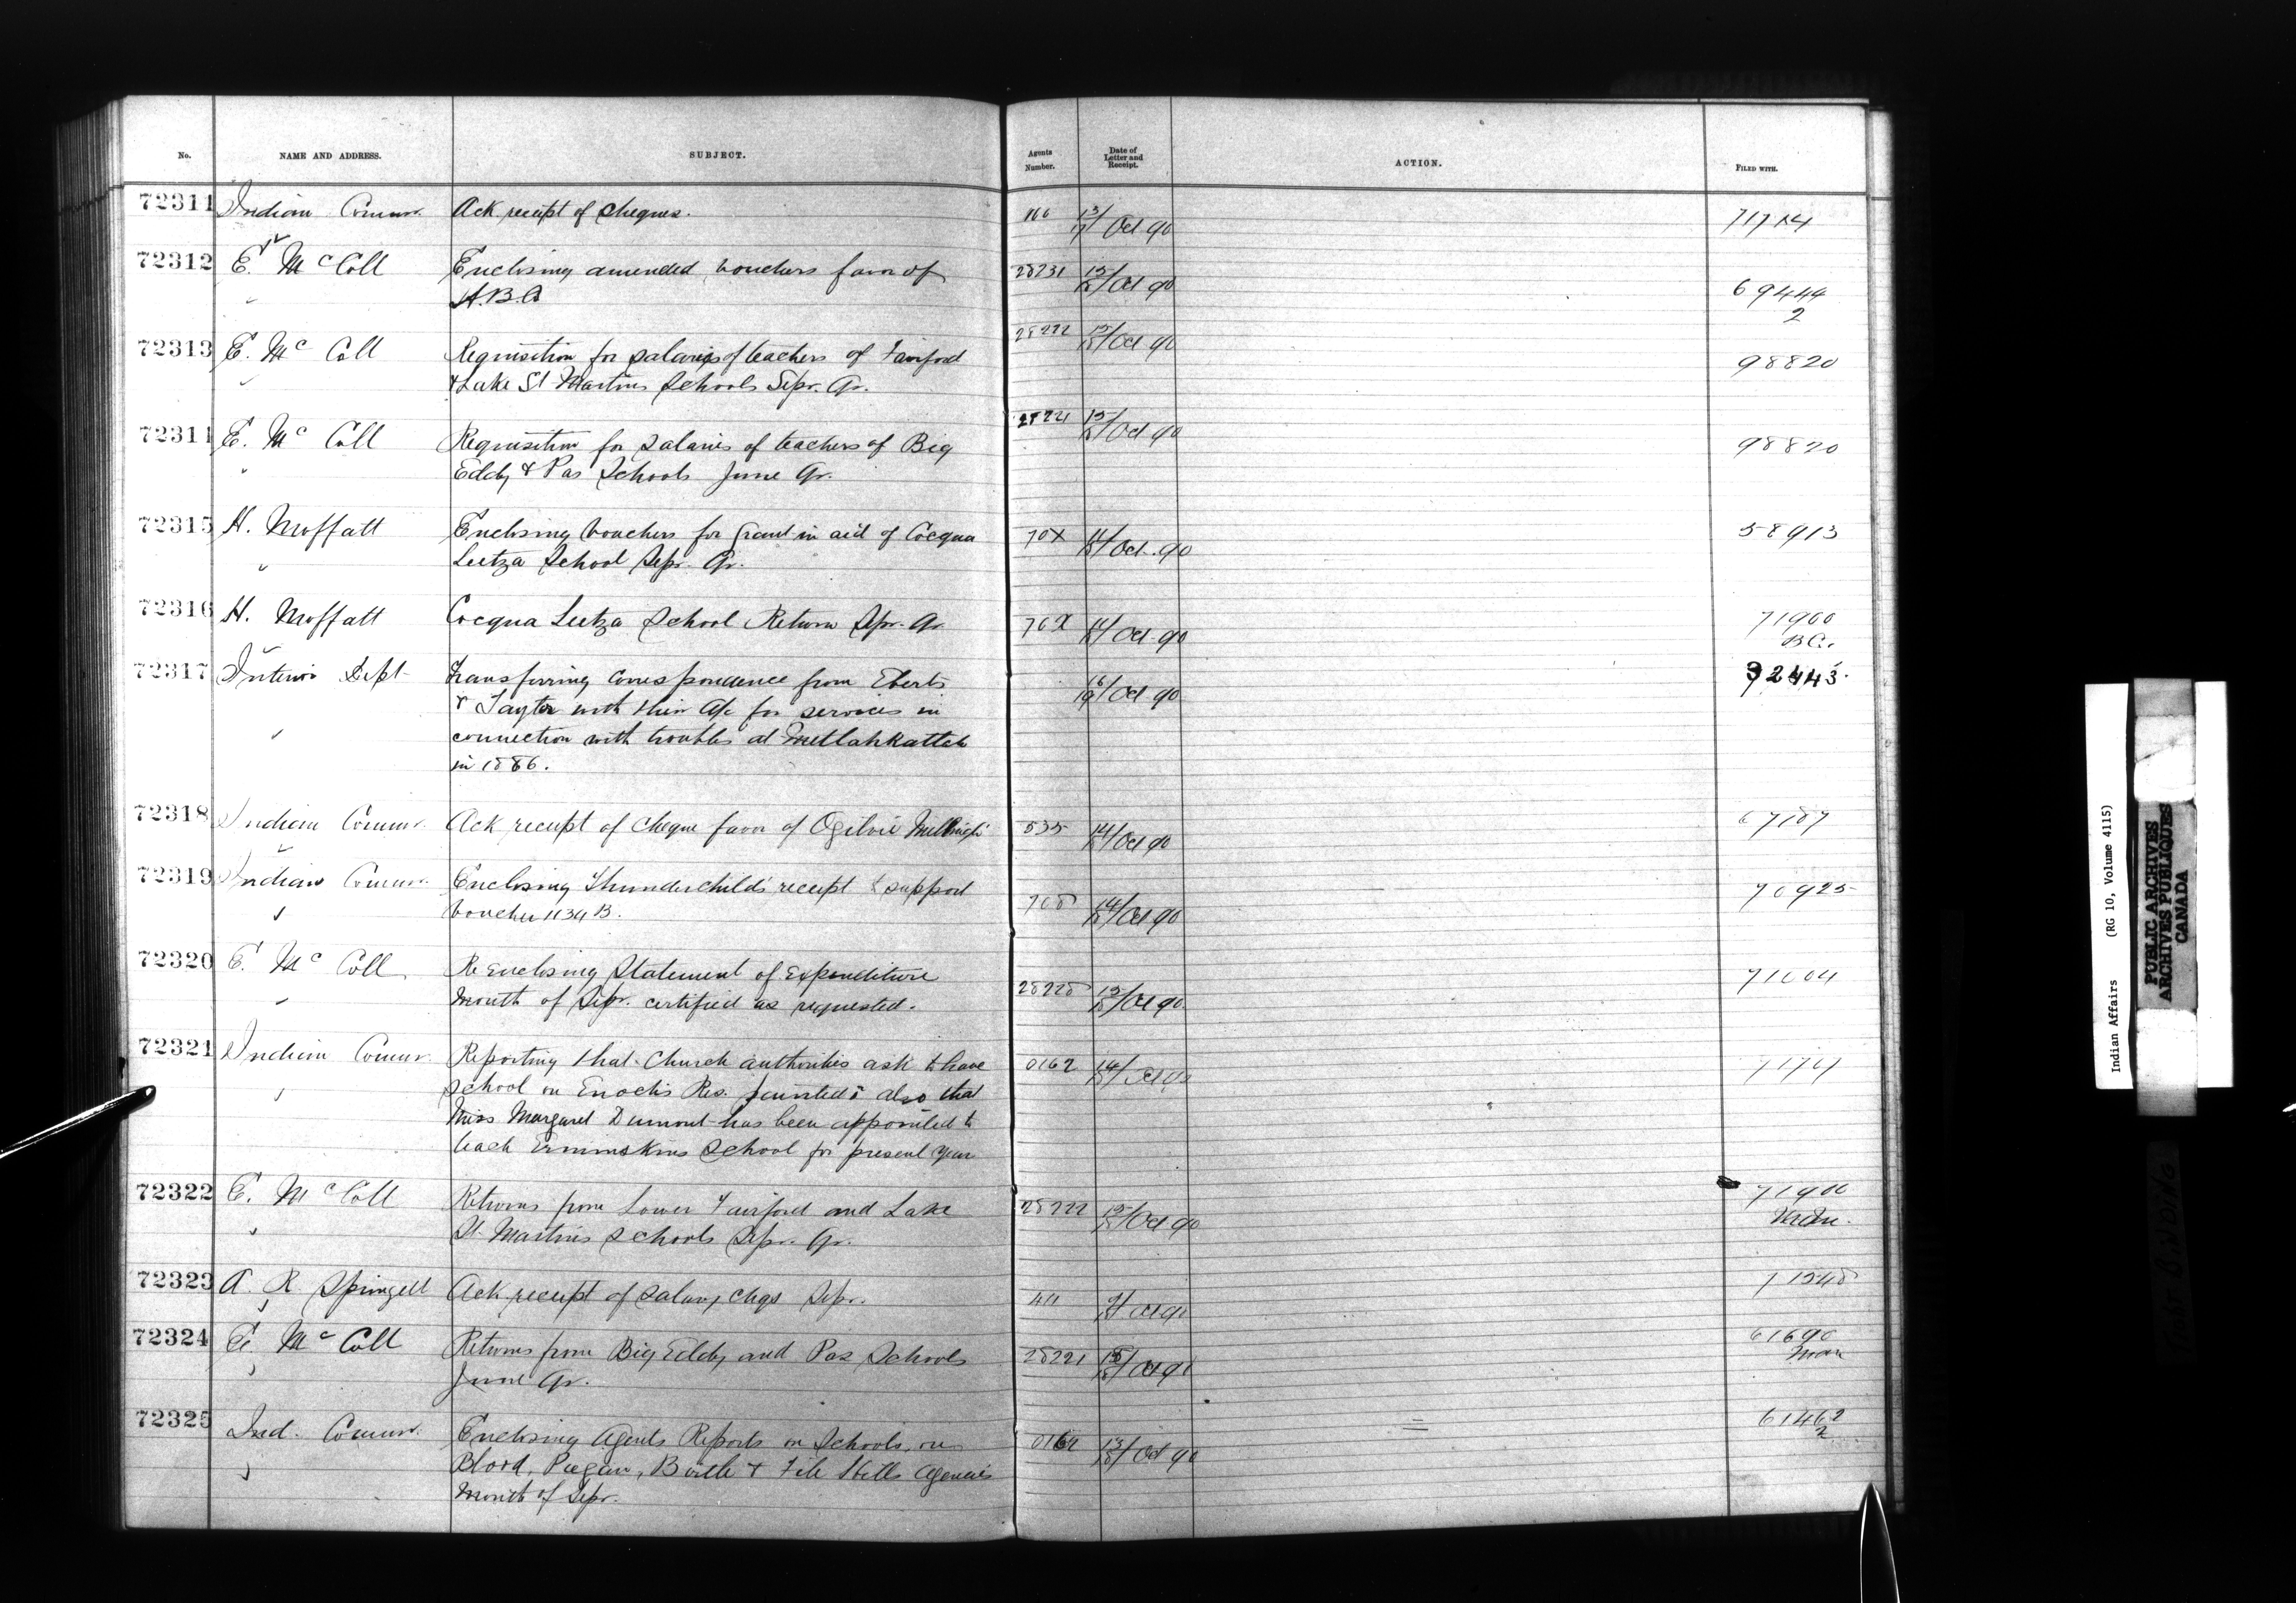 No. NAME AND ADDRESS. SUBJECT. Agents Number. Date of Letter and Receipt. ACTION. FILED WITH.
72311 Indian Commr. Ack receipt of cheques. 13/17 Oct 90 71714
72312 E. McColl Enclosing amended vouchers favor of 28231 15/18 Oct 90 69444
H.B.Co 2
72313 E. Mc Coll Requisition for salaries of teachers of Fairford 28222 15/18 Oct 90 98820
& Lake St Martins Schools Sepr. Qr.
72314 E. Mc Coll Requisition for salaries of teachers of Big 28221 15/18 Oct 90 98820
Eddy & Pas Schools June Qr.
72315 H. Moffatt Enclosing vouchers for grant in aid of Cocqua 70X 14/18 Oct. 90 58913
Leetza School Sepr. Qr.
72316 H. Moffatt Cocqua Leetza School Return Sepr. Qr 70X 14/18 Oct 90 71900
B.C.
72317 Interior Dept Transferring correspondence from Eberts 16/18 Oct 90 92443
& Taylor with their a/c for services in
connection with troubles at Metlahkattah
in 1886.
72318 Indian Commr. Ack receipt of cheque favor of Ogilvie 535 14/18 Oct 90 67187
72319 Indian Commr. Enclosing Thunderchild's receipt to support 708 14/18 Oct 90 70925
voucher 1134 B.
72320 E. Mc Coll Re enclosing Statement of Expenditure 28228 15/18 Oct 90 71604
month of Sepr. certified as requested.
72321 Indian Commr. Reporting that Church authorities ask to have 0162 14/18 Oct 90
School on Enoch's Res. painted; also that
Miss Margaret Dumont has been appointed to
teach Ermineskins School for present year
72322 E. McColl Returns from Lower Fairford and Lake 28222 15/18 Oct 90 71900
St. Martins Schools Sepr. Qr.
72323 A. R Springett Ack receipt of salary chqs Sepr. 411 Oct 90 11548
72324 E. McColl Returns from Big Eddy and Pas Schools 28221 15/18 Oct 90 61690
June Qr. Man
72325 Ind. Commr. Enclosing Agents Reports on Schools, on 0164 13/18 Oct 90 61462
Blood, Piegan, Birtle & File Hills Agencies 2
month of Sepr.
Indian Affairs (RG 10, Volume 4115)
PUBLIC ARCHIVES
ARCHIVES PUBLIQUES
CANADA